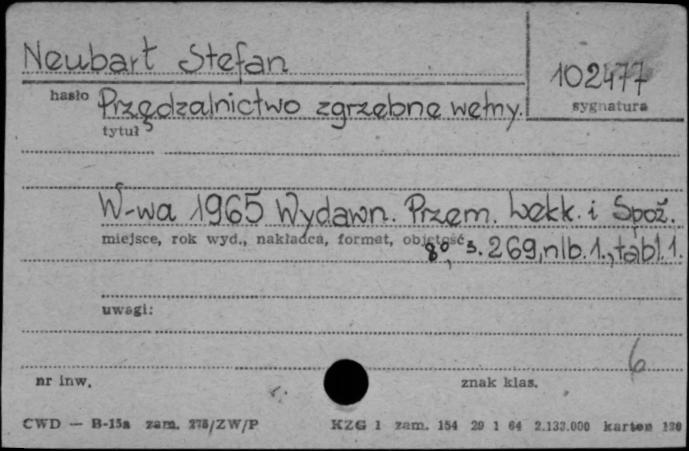 Neubart Stefan
102477
hasło
sygnatura
Przędzalnictwo zgrzebne wełny.
tytuł
W-wa 1965 Wydawn. Przem. Lekk. i Spoż.
miejsce, rok wyd., nakładca, format, objętość
8°, s. 269, nlb. 1., tabl. 1.
uwagi:
6
nr inw.
znak klas.
CWD — B-15a zam. 275/ZW/P
KZG 1 zam. 154 29 1 64 2.133.000 karton 120